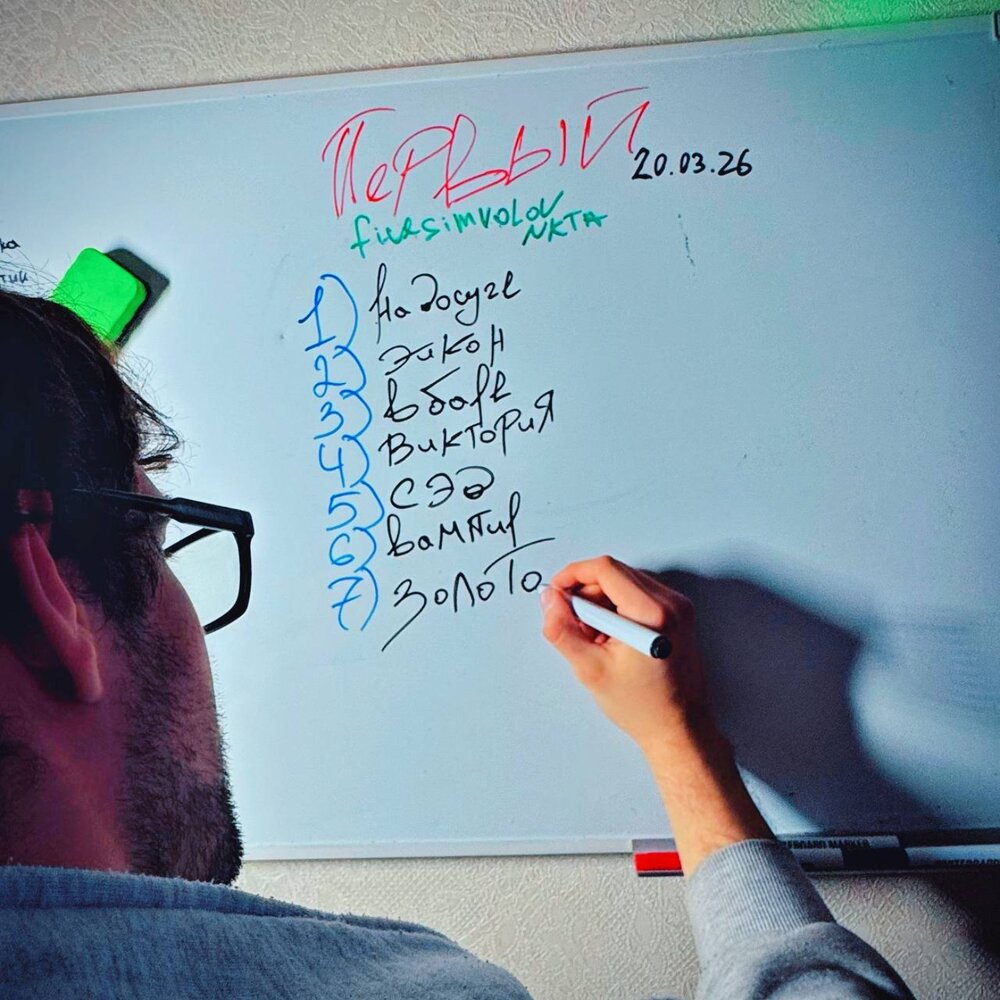 Первый
20.03.26
fivesimvolov
NKTA
1) На досуге
2) Эйкон
3) в баре
4) Виктория
5) СЭД
6) вампир
7) Золото